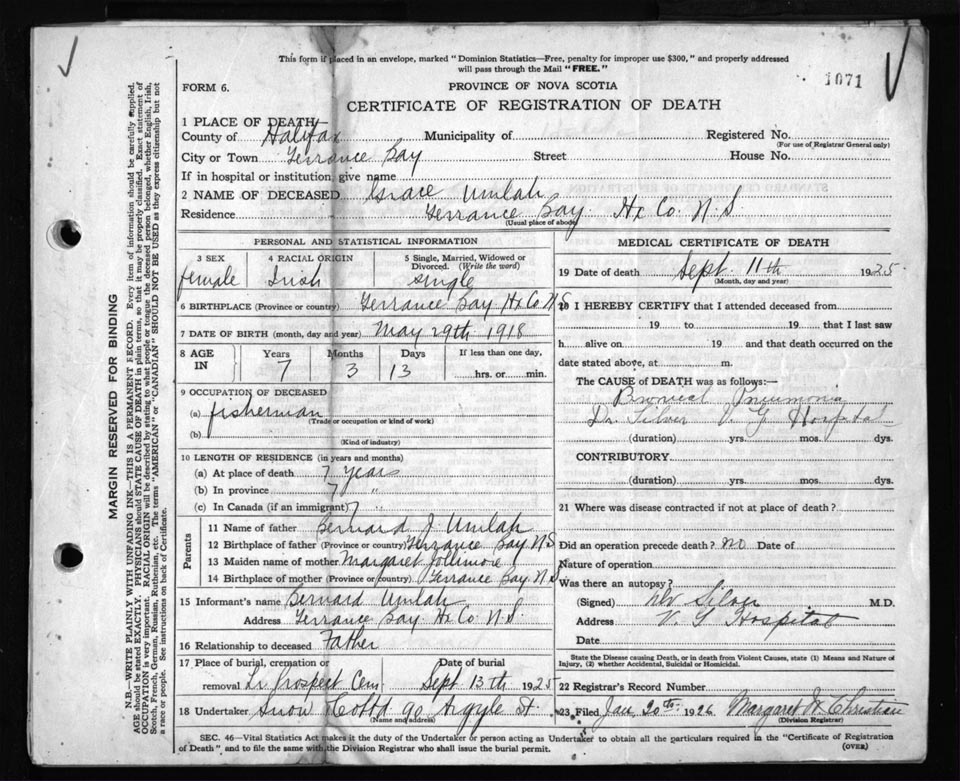 This form if placed in an envelope, marked "Dominion Statistics—Free, penalty for improper use $300," and properly addressed
will pass through the Mail "FREE."
1071
FORM 6.
PROVINCE OF NOVA SCOTIA
CERTIFICATE OF REGISTRATION OF DEATH
1 PLACE OF DEATH
County of Halifax Municipality of Registered No.
(For use of Registrar General only)
City or Town Terrance Bay Street House No.
If in hospital or institution, give name
2 NAME OF DECEASED Grace Umlah
Residence Terrance Bay Hx Co. N.S.
(Usual place of abode)
PERSONAL AND STATISTICAL INFORMATION
3 SEX 4 RACIAL ORIGIN 5 Single, Married, Widowed or
Divorced. (Write the word)
female Irish single
6 BIRTHPLACE (Province or country) Terrance Bay Hx Co N S
7 DATE OF BIRTH (month, day and year) May 29th 1918
8 AGE IN Years Months Days If less than one day,
7 3 13 hrs. or min.
9 OCCUPATION OF DECEASED
(a) fisherman
(Trade or occupation or kind of work)
(b)
(Kind of industry)
10 LENGTH OF RESIDENCE (in years and months)
(a) At place of death 7 years
(b) In province 7 "
(c) In Canada (if an immigrant) 7 "
Parents
11 Name of father Bernard J Umlah
12 Birthplace of father (Province or country) Terrance Bay N S
13 Maiden name of mother Margaret Jollimore
14 Birthplace of mother (Province or country) Terrance Bay N S
15 Informant's name Bernard Umlah
Address Terrance Bay Hx Co. N.S.
16 Relationship to deceased Father
17 Place of burial, cremation or Date of burial
removal Lr Prospect Cem Sept 13th 1925
18 Undertaker Snow Co Ltd 90 Argyle St.
(Name and address)
MEDICAL CERTIFICATE OF DEATH
19 Date of death Sept. 11th 1925
(Month, day and year)
20 I HEREBY CERTIFY that I attended deceased from
19 to 19 that I last saw
h alive on 19 and that death occurred on the
date stated above, at m.
The CAUSE of DEATH was as follows:—
Bronical Pneumonia
Dr Silver V. G Hospital
(duration) yrs. mos. dys.
CONTRIBUTORY
(duration) yrs. mos. dys.
21 Where was disease contracted if not at place of death?
Did an operation precede death? no Date of
Nature of operation
Was there an autopsy?
(Signed) Dr Silver M.D.
Address V. G Hospital
Date
State the Disease causing Death, or in death from Violent Causes, state (1) Means and Nature of
Injury, (2) whether Accidental, Suicidal or Homicidal.
22 Registrar's Record Number
23 Filed Jan 20th 1926 Margaret Christian
(Division Registrar)
SEC. 46—Vital Statistics Act makes it the duty of the Undertaker or person acting as Undertaker to obtain all the particulars required in the "Certificate of Registration
of Death" and to file the same with the Division Registrar who shall issue the burial permit.
(OVER)
MARGIN RESERVED FOR BINDING
N.B.—WRITE PLAINLY WITH UNFADING INK—THIS IS A PERMANENT RECORD. Every item of information should be carefully supplied.
AGE should be stated EXACTLY. PHYSICIANS should STATE CAUSE OF DEATH in plain terms, so that it may be properly classified. Exact statement of
OCCUPATION is very important. RACIAL ORIGIN will be described by stating to what people or tongue the deceased person belonged, whether English, Irish,
Scotch, French, German, Russian, Ruthenian, etc. The terms "AMERICAN" or "CANADIAN" SHOULD NOT BE USED as they express citizenship but not
a race or people. See instructions on back of Certificate.